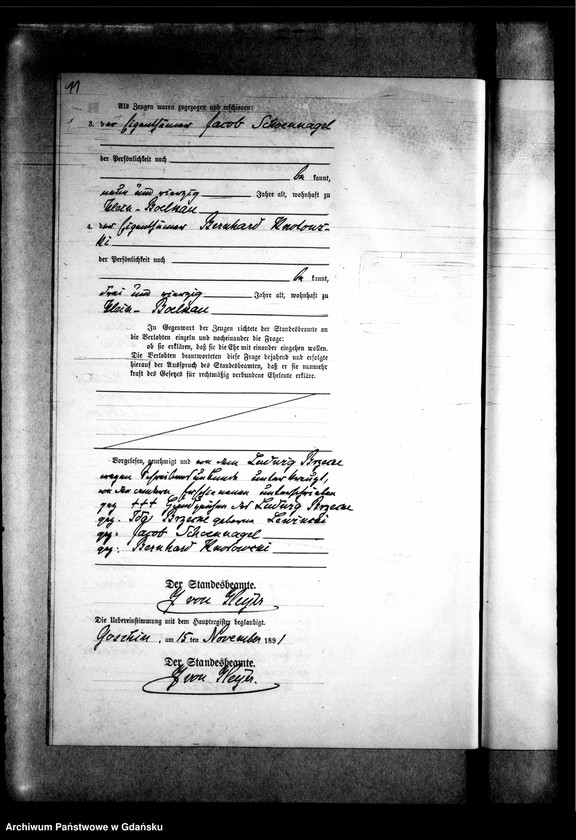 11
Als Zeugen waren zugezogen und erschienen:
3. der Eigenthümer Jacob Schoennagel
der Persönlichkeit nach
be kannt,
neun und vierzig Jahre alt, wohnhaft zu
Klein-Boelkau
4. der Eigenthümer Bernhard
ki
der Persönlichkeit nach
be kannt,
drei und vierzig Jahre alt, wohnhaft zu
Klein-Boelkau
In Gegenwart der Zeugen richtete der Standesbeamte an
die Verlobten einzeln und nacheinander die Frage:
ob sie erklären, daß sie die Ehe mit einander eingehen wollen.
Die Verlobten beantworteten diese Frage bejahend und erfolgte
hierauf der Ausspruch des Standesbeamten, daß er sie nunmehr
kraft des Gesetzes für rechtmäßig verbundene Eheleute erkläre.
Vorgelesen, genehmigt und von dem Ludwig Brzeske
wegen Schreibensunkunde unterkreuzt,
von den anderen Erschienenen unterschrieben
gez +++ Handzeichen des Ludwig Brzeske
gez. Brzeske geborene Lewinski
gez. Jacob Schoennagel
gez. Bernhard Knotowski
Der Standesbeamte.
von Heyer
Die Uebereinstimmung mit dem Hauptregister beglaubigt.
Goschin, am 15 ten November 1891
Der Standesbeamte.
von Heyer.
Archiwum Państwowe w Gdańsku